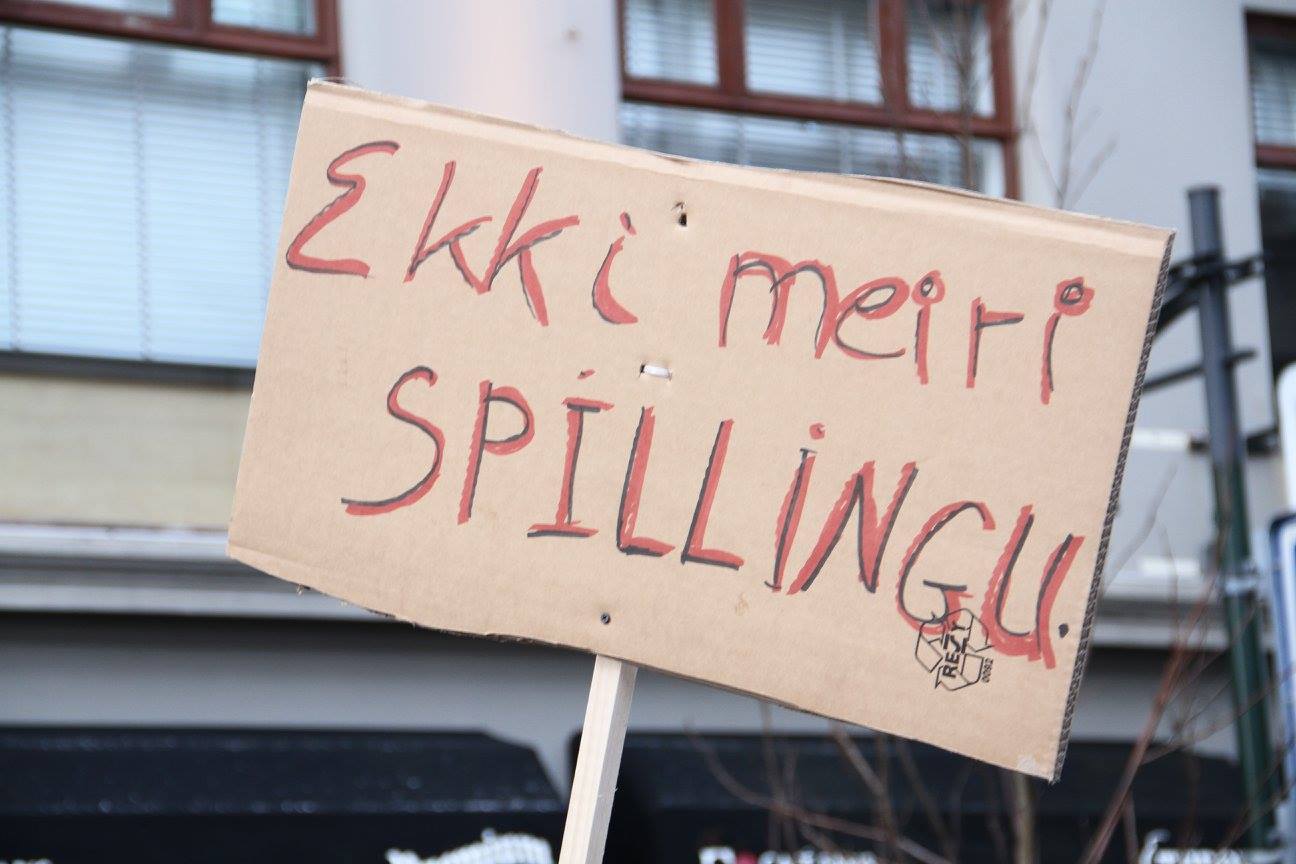 Ekki meiri
SPILLiNGU.
RESY
0092